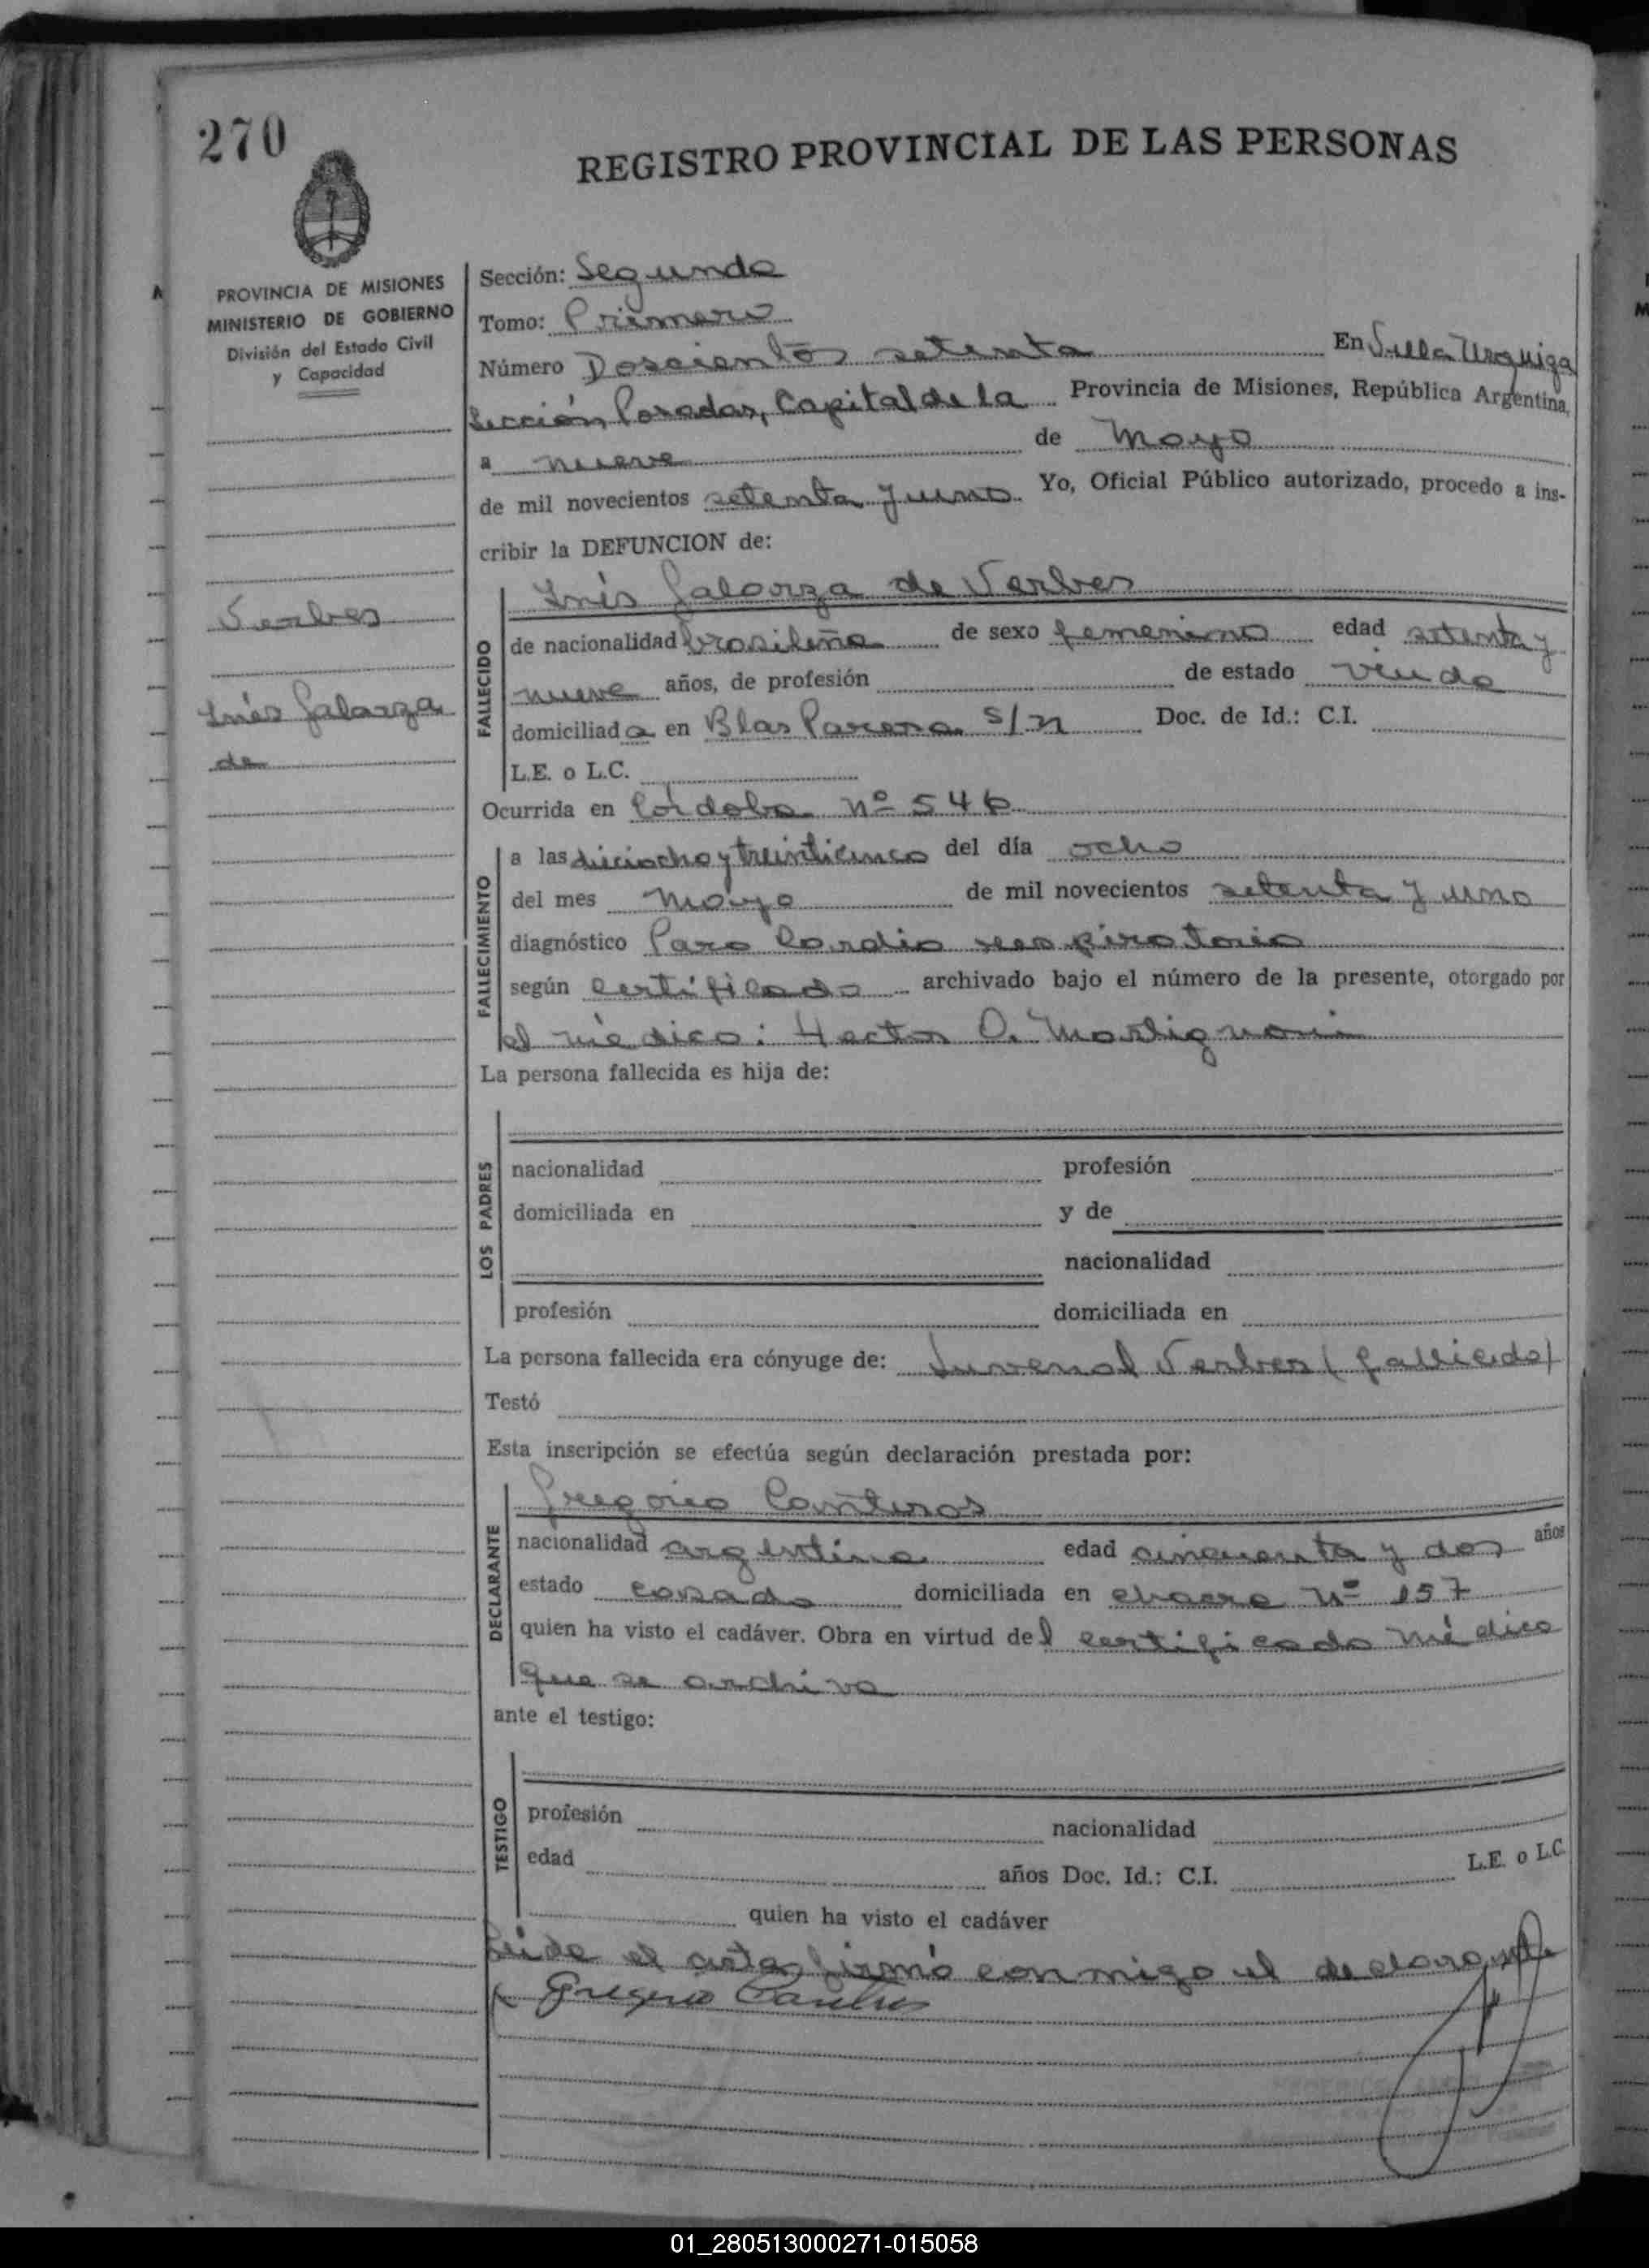 270
REGISTRO PROVINCIAL DE LAS PERSONAS
PROVINCIA DE MISIONES
MINISTERIO DE GOBIERNO
División del Estado Civil
y Capacidad
Sección: Segunda
Tomo: Primero
Número Doscientos setenta En Villa Urquiza
Sección Posadas, Capital de la Provincia de Misiones, República Argentina,
a nueve de Mayo
de mil novecientos setenta y uno Yo, Oficial Público autorizado, procedo a ins-
cribir la DEFUNCION de:
Verbes
Inés Galarza
de
FALLECIDO
Inés Galarza de Verbes
de nacionalidad brasileña de sexo femenino edad setenta y
nueve años, de profesión de estado viuda
domiciliada en Blas Parera s/n Doc. de Id.: C.I.
L.E. o L.C.
Ocurrida en Córdoba Nº 546
FALLECIMIENTO
a las dieciocho y treinticinco del día ocho
del mes Mayo de mil novecientos setenta y uno
diagnóstico Paro Cardio respiratorio
según certificado archivado bajo el número de la presente, otorgado por
el médico: Hector O. Martignoni
La persona fallecida es hija de:
LOS PADRES
nacionalidad profesión
domiciliada en y de
nacionalidad
profesión domiciliada en
La persona fallecida era cónyuge de: Juvenal Verbes (fallecido)
Testó
Esta inscripción se efectúa según declaración prestada por:
DECLARANTE
Gregorio
nacionalidad argentina edad cincuenta y dos años
estado casado domiciliada en chacra Nº 157
quien ha visto el cadáver. Obra en virtud del certificado médico
que se archiva
ante el testigo:
TESTIGO
profesión nacionalidad
edad años Doc. Id.: C.I. L.E. o L.C.
quien ha visto el cadáver
Leida el acta, firmó conmigo el declarante
Gregorio
01_280513000271-015058